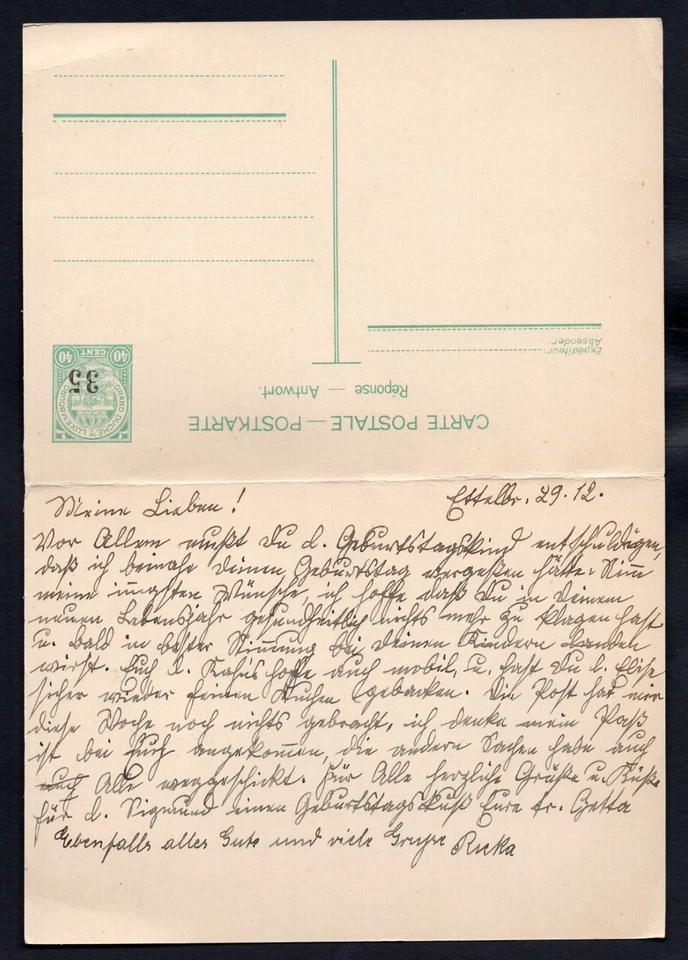 40 CENT. 40
35
GRAND DUCHÉ DE LUXEMBOURG
Expéditeur:
Absender:
Réponse — Antwort.
CARTE POSTALE — POSTKARTE
Meine Lieben! Ettelbr. 29.12.
Vor Allem mußt Du l. Geburtstagskind entschuldigen,
daß ich beinahe Deinen Geburtstag vergeßen hätte. Nimm
meine innigsten Wünsche, ich hoffe daß Du in Deinem
neuen Lebensjahr gesundheitlich nichts mehr zu klagen hast
u. bald in bester Stimmung bei Deinen Kindern landen
wirst. Euch l. hoffe auch mobil, u. hast Du l. Elise
sicher wieder feinen Kuchen gebacken. Die Post hat mir
diese Woche noch nichts gebracht, ich denke mein Paß
ist bei Euch angekommen, die andern Sachen habe auch
auch Alle weggeschickt. Für Alle herzliche Grüße u. Küße
für l. Sigmund einen Geburtstagskuß Eure tr. Getta
Ebenfalls alles Gute und viele Grüße Ricka